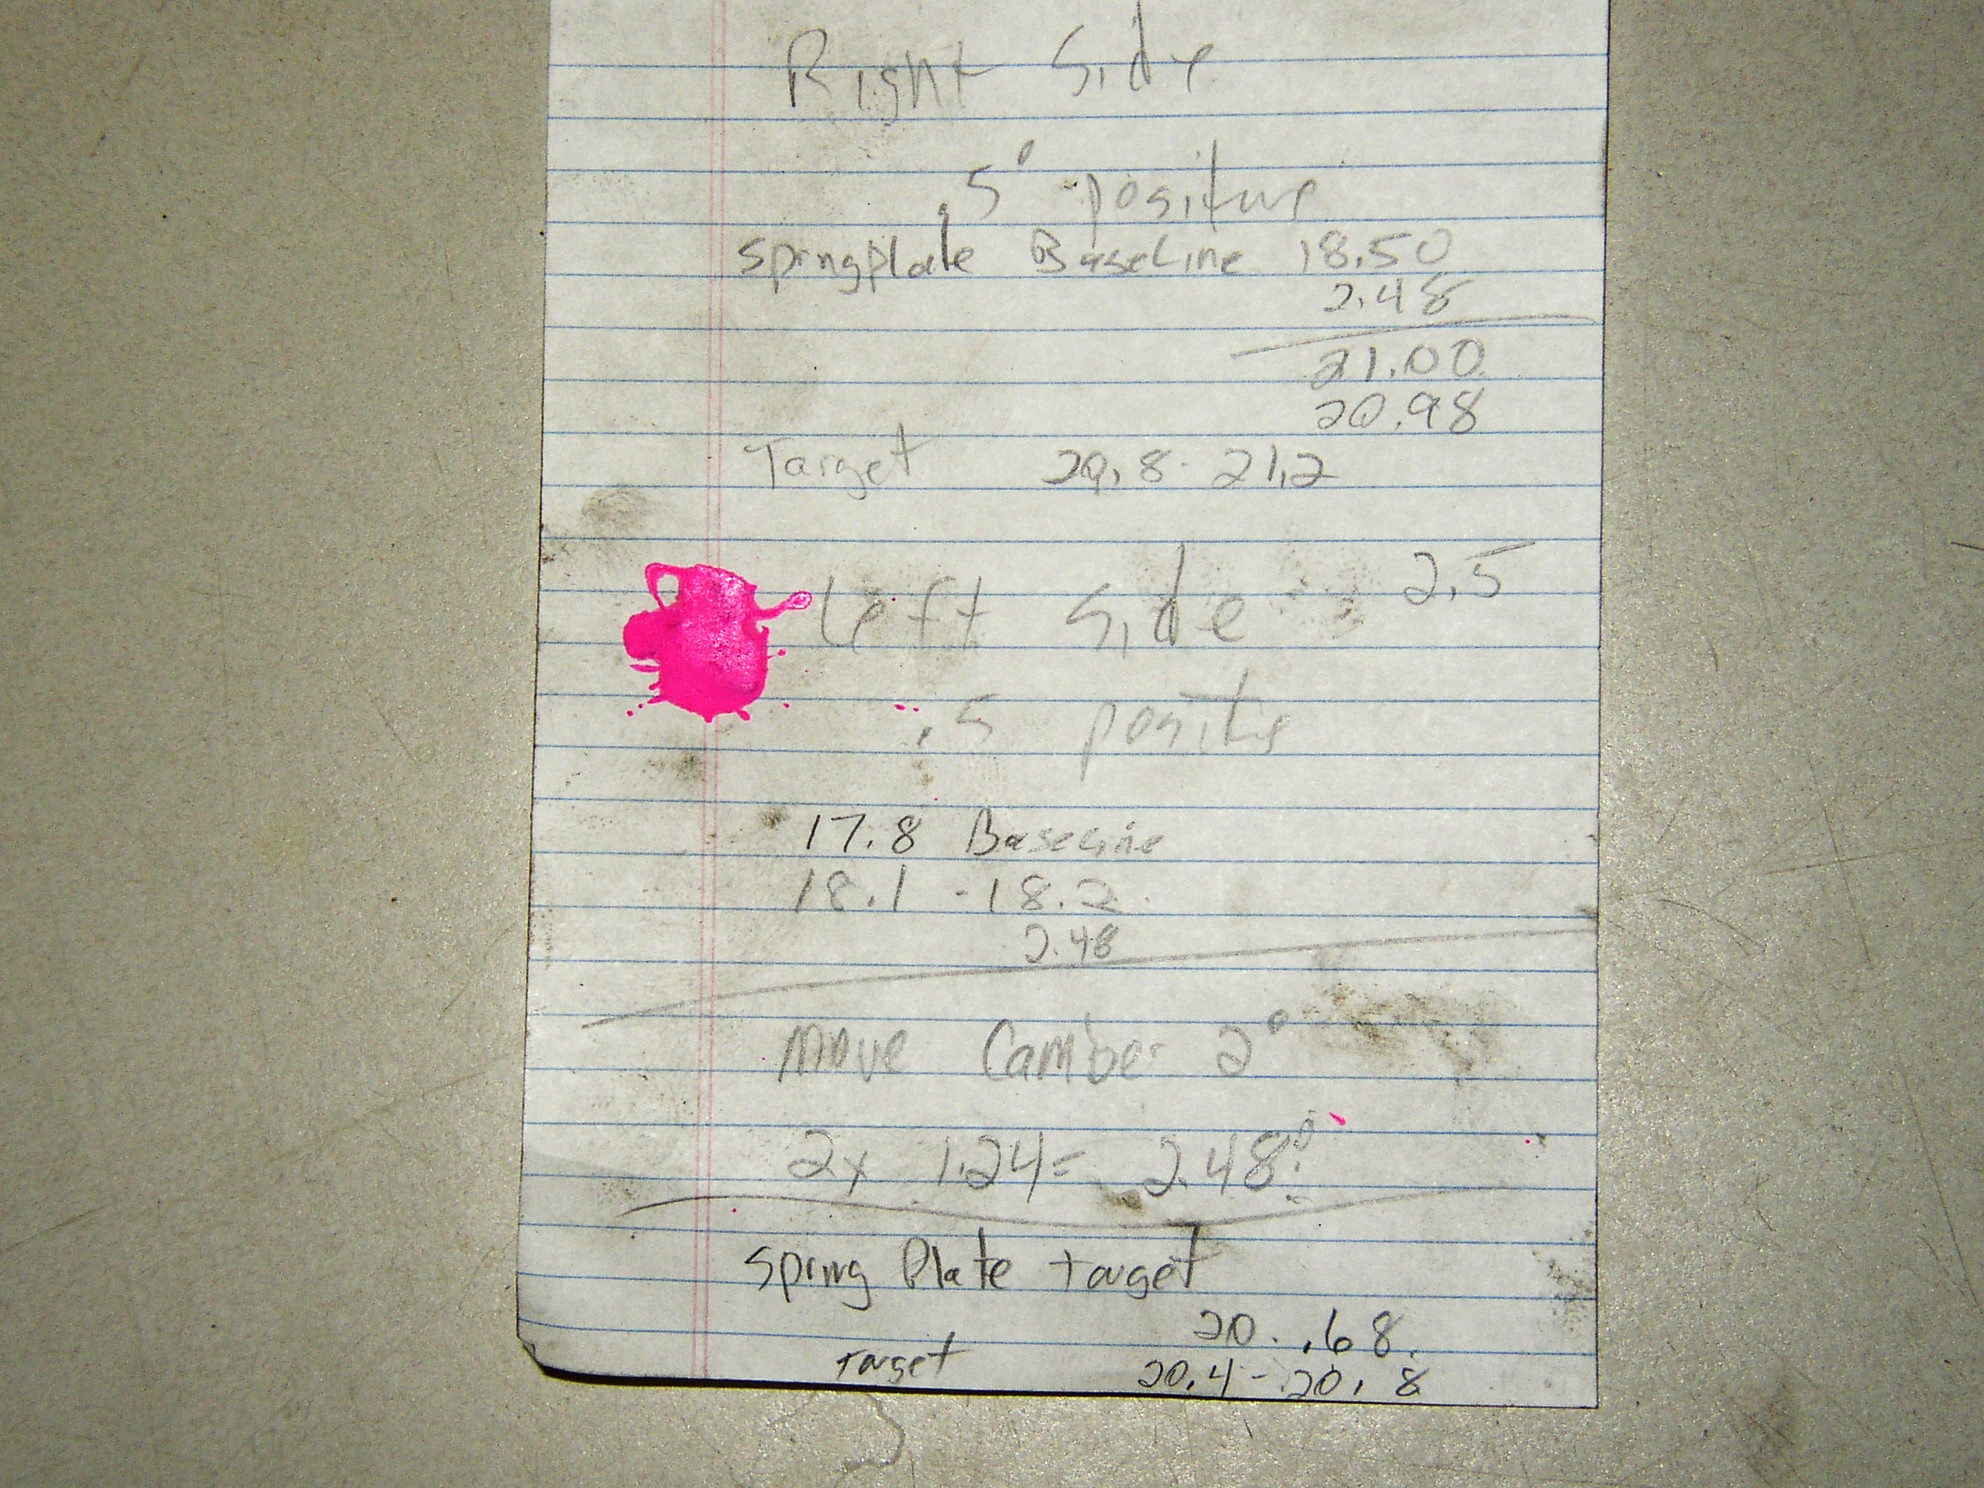 Right Side
.5° positive
Springplate BaseLine 18.50
2.48
21.00
20.98
Target 20.8 - 21.2
Left Side 2.5
.5 positive
17.8 Baseline
18.1 - 18.2
2.48
Move Camber 2°
2x 1.24= 2.48°
Spring Plate target
20..68.
Target 20.4 - 20.8